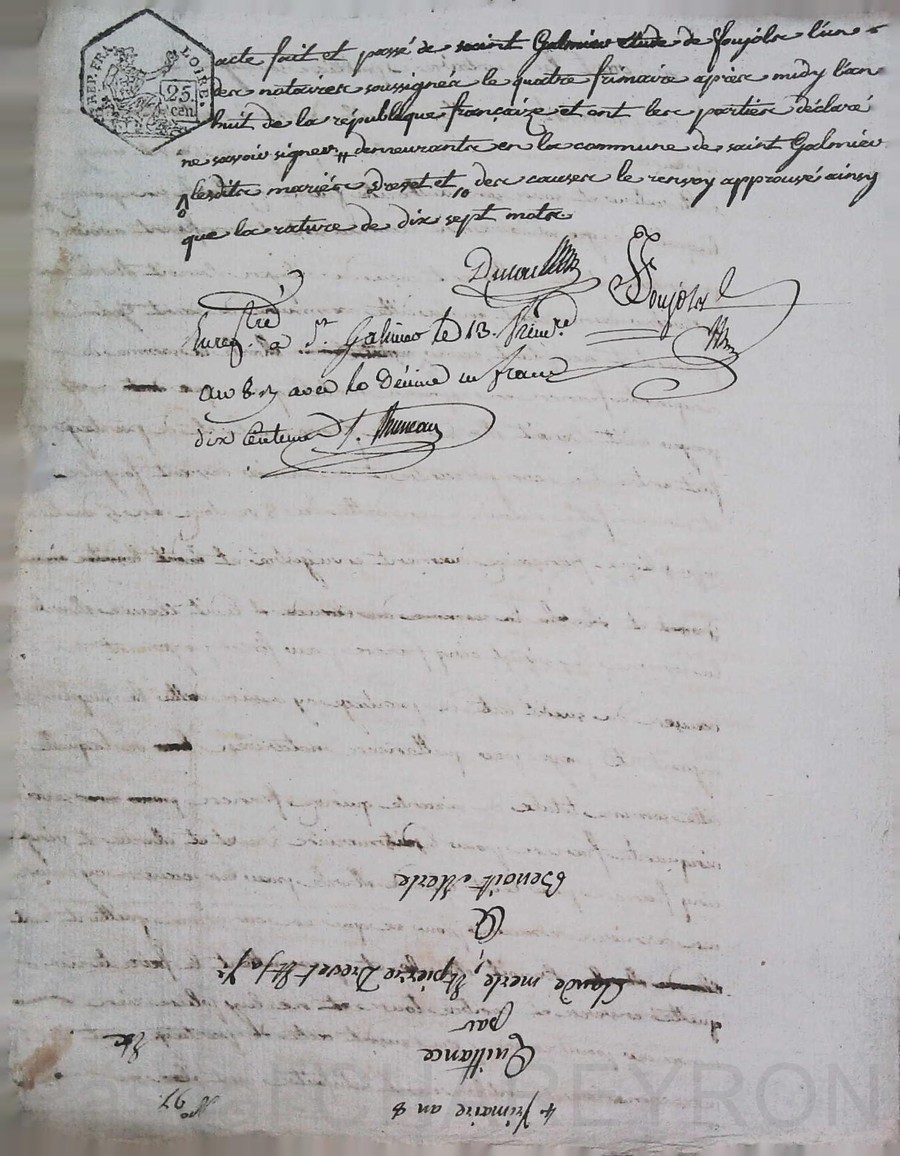 REP. FRA
LOIRE.
25.
cen
acte fait et passé de saint Galmier etude de foujols l'un
des notaires soussignés le quatre frimaire après midy l'an
huit de la république françaize et ont les parties déclaré
ne savoir signer, demeurants en la commune de saint Galmier
lesdits mariés Drevet et des causes le renvoy approuvé ainsy
que la rature de dix sept mots
foujols
Enregtré a St. Galmier le 13. frimre
an 8 avec le Décime un franc
dix centimes
4 frimaire an 8
No 97.
Quittance
par
Claude merle, Et pierre Drevet Et sa fe
A
Benoit Merle